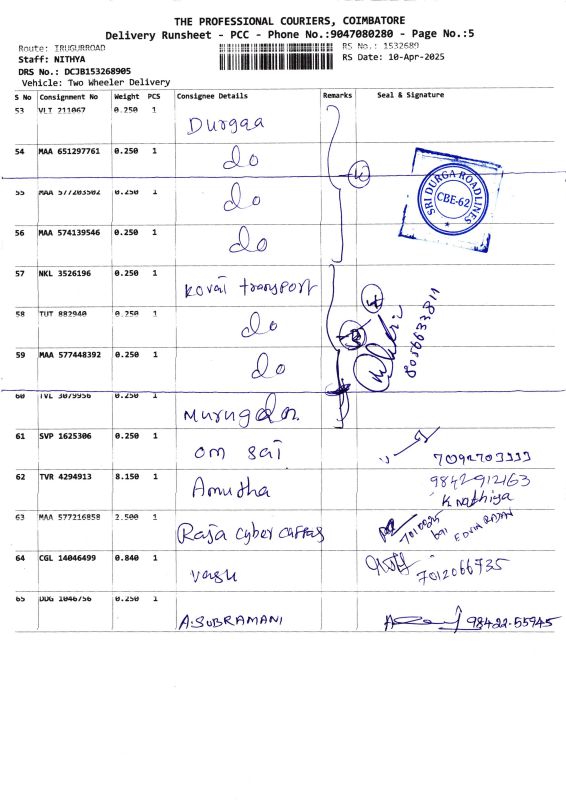 THE PROFESSIONAL COURIERS, COIMBATORE
Delivery Runsheet - PCC - Phone No.:9047080280 - Page No.:5
Route: IRUGURROAD
RS No.: 1532689
Staff: NITHYA
RS Date: 10-Apr-2025
DRS No.: DCJB153268905
Vehicle: Two Wheeler Delivery
S No Consignment No Weight PCS Consignee Details Remarks Seal & Signature
53 VLT 211067 0.250 1 Durgaa
54 MAA 651297761 0.250 1 do
SRI DURGA ROADLINES
CBE-62
55 MAA 577203502 0.250 1 do
56 MAA 574139546 0.250 1 do
57 NKL 3526196 0.250 1 Kovai transport
58 TUT 882940 0.250 1 do
8056633811
59 MAA 577448392 0.250 1 do
60 TVL 3079956 0.250 1
61 SVP 1625306 0.250 1 om sai
62 TVR 4294913 8.150 1 Amutha
K
63 MAA 577216858 2.500 1 Raja cyber
64 CGL 14046499 0.840 1 vasu 7012066735
65 DDG 1046756 0.250 1 A.SUBRAMANI 98422-55945